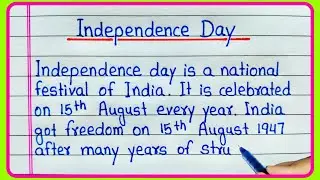 Independence Day
Independence day is a national
festival of India. It is celebrated
on 15th August every year. India
got freedom on 15th August 1947
after many years of stru